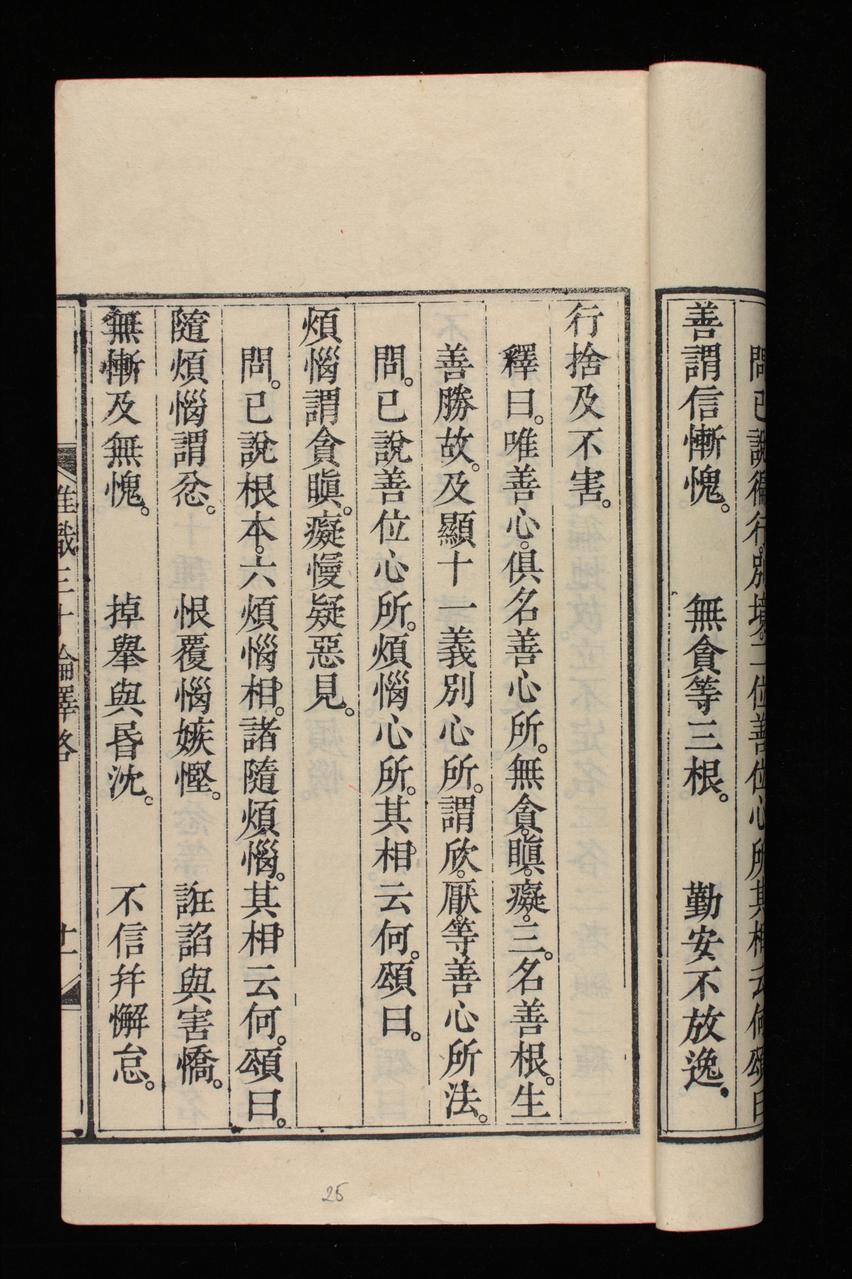 問已說徧行。別境。二位善位心所其相云何頌曰
善謂信慚愧。　無貪等三根。　勤安不放逸。
行捨及不害。
釋曰。唯善心。俱名善心所。無貪。瞋。癡。三。名善根。生
善勝故。及顯十一義別心所。謂欣。厭。等善心所法。
問。已說善位心所。煩惱心所。其相云何。頌曰。
煩惱謂貪瞋。癡慢疑惡見。
問。已說根本。六煩惱相。諸隨煩惱。其相云何。頌曰。
隨煩惱謂忿。　恨覆惱嫉慳。　誑諂與害憍。
無慚及無愧。　掉舉與昏沈。　不信并懈怠。
唯識三十論釋略　十一
25